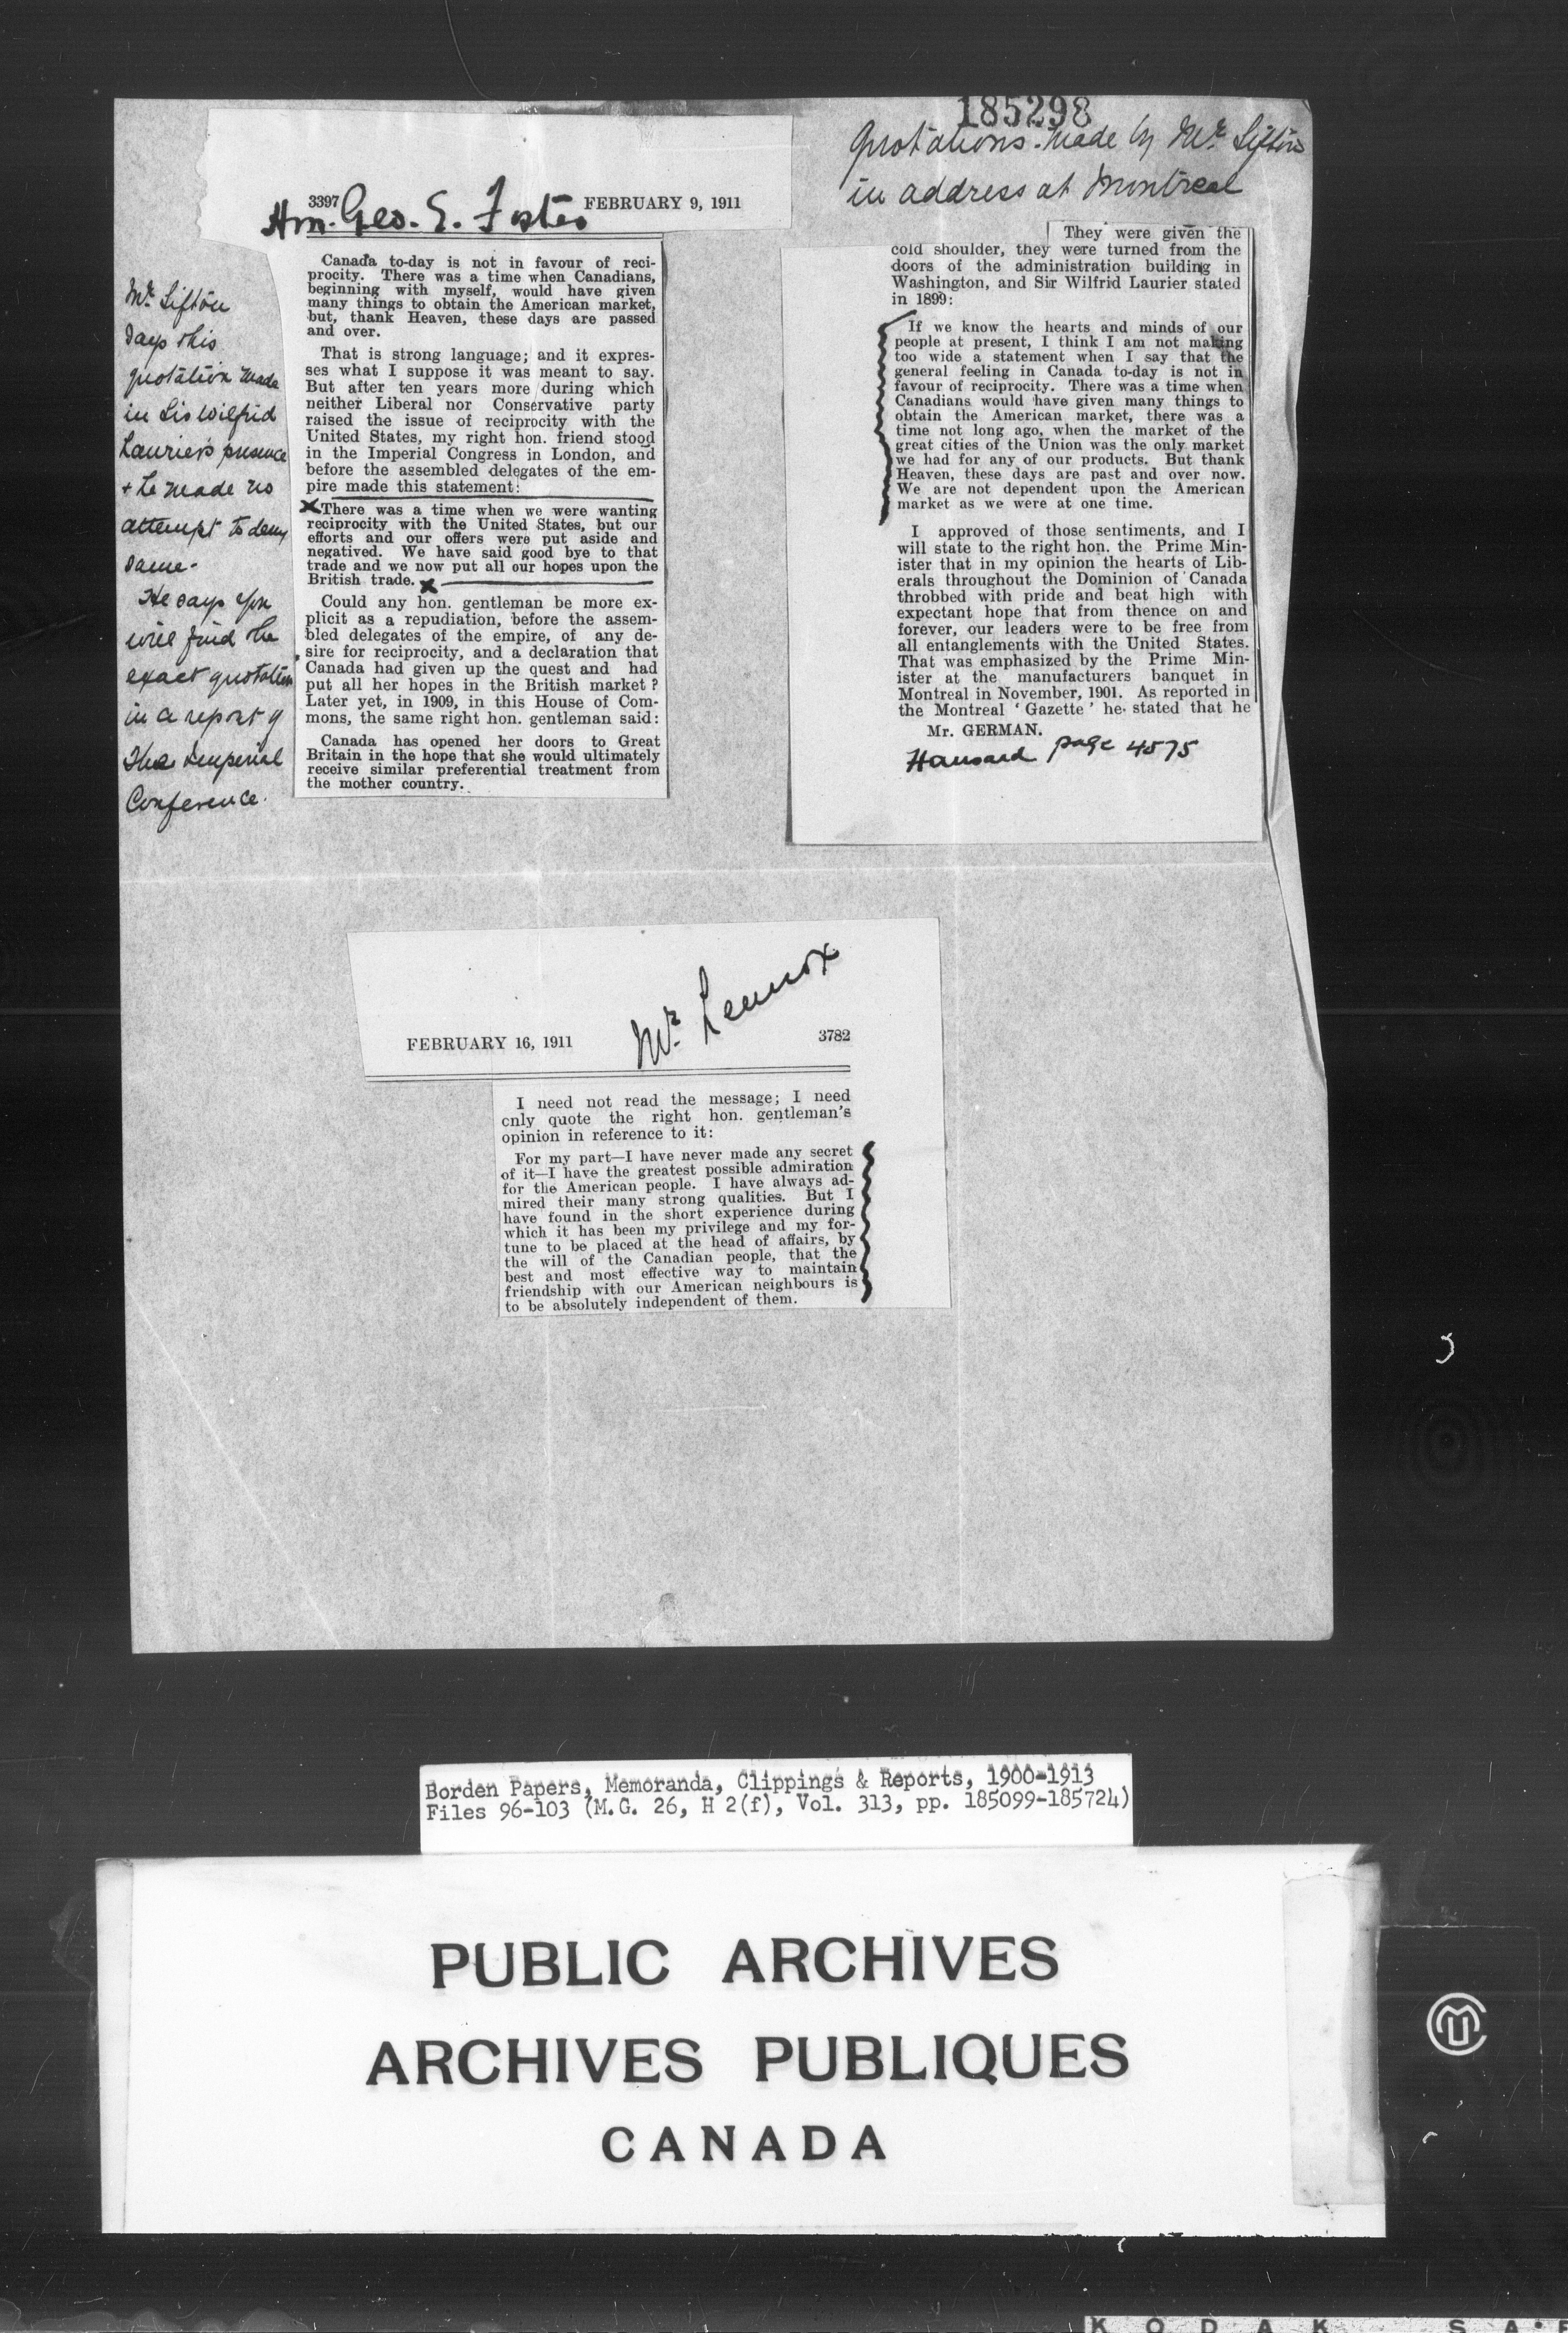 185298
Quotations made by Mr. Sifton
in address at Montreal
3397 FEBRUARY 9, 1911
Hon. Geo. E. Foster
Canada to-day is not in favour of reci-
procity. There was a time when Canadians,
beginning with myself, would have given
many things to obtain the American market,
but, thank Heaven, these days are passed
and over.
That is strong language; and it expres-
ses what I suppose it was meant to say.
But after ten years more during which
neither Liberal nor Conservative party
raised the issue of reciprocity with the
United States, my right hon. friend stood
in the Imperial Congress in London, and
before the assembled delegates of the em-
pire made this statement:
X There was a time when we were wanting
reciprocity with the United States, but our
efforts and our offers were put aside and
negatived. We have said good bye to that
trade and we now put all our hopes upon the
British trade. X
Could any hon. gentleman be more ex-
plicit as a repudiation, before the assem-
bled delegates of the empire, of any de-
sire for reciprocity, and a declaration that
Canada had given up the quest and had
put all her hopes in the British market?
Later yet, in 1909, in this House of Com-
mons, the same right hon. gentleman said:
Canada has opened her doors to Great
Britain in the hope that she would ultimately
receive similar preferential treatment from
the mother country.
Mr. Sifton
says this
quotation made
in Sir Wilfrid
Laurier's presence
+ he made no
attempt to deny
same.
He says you
will find the
exact quotation
in a report of
The Imperial
Conference.
They were given the
cold shoulder, they were turned from the
doors of the administration building in
Washington, and Sir Wilfrid Laurier stated
in 1899:
If we know the hearts and minds of our
people at present, I think I am not making
too wide a statement when I say that the
general feeling in Canada to-day is not in
favour of reciprocity. There was a time when
Canadians would have given many things to
obtain the American market, there was a
time not long ago, when the market of the
great cities of the Union was the only market
we had for any of our products. But thank
Heaven, these days are past and over now.
We are not dependent upon the American
market as we were at one time.
I approved of those sentiments, and I
will state to the right hon. the Prime Min-
ister that in my opinion the hearts of Lib-
erals throughout the Dominion of Canada
throbbed with pride and beat high with
expectant hope that from thence on and
forever, our leaders were to be free from
all entanglements with the United States.
That was emphasized by the Prime Min-
ister at the manufacturers banquet in
Montreal in November, 1901. As reported in
the Montreal 'Gazette' he stated that he
Mr. GERMAN.
Hansard page 4575
Mr. Lennox
FEBRUARY 16, 1911 3782
I need not read the message; I need
only quote the right hon. gentleman's
opinion in reference to it:
For my part—I have never made any secret
of it—I have the greatest possible admiration
for the American people. I have always ad-
mired their many strong qualities. But I
have found in the short experience during
which it has been my privilege and my for-
tune to be placed at the head of affairs, by
the will of the Canadian people, that the
best and most effective way to maintain
friendship with our American neighbours is
to be absolutely independent of them.
Borden Papers, Memoranda, Clippings & Reports, 1900-1913
Files 96-103 (M.G. 26, H 2(f), Vol. 313, pp. 185099-185724)
PUBLIC ARCHIVES
ARCHIVES PUBLIQUES
CANADA
KODAK